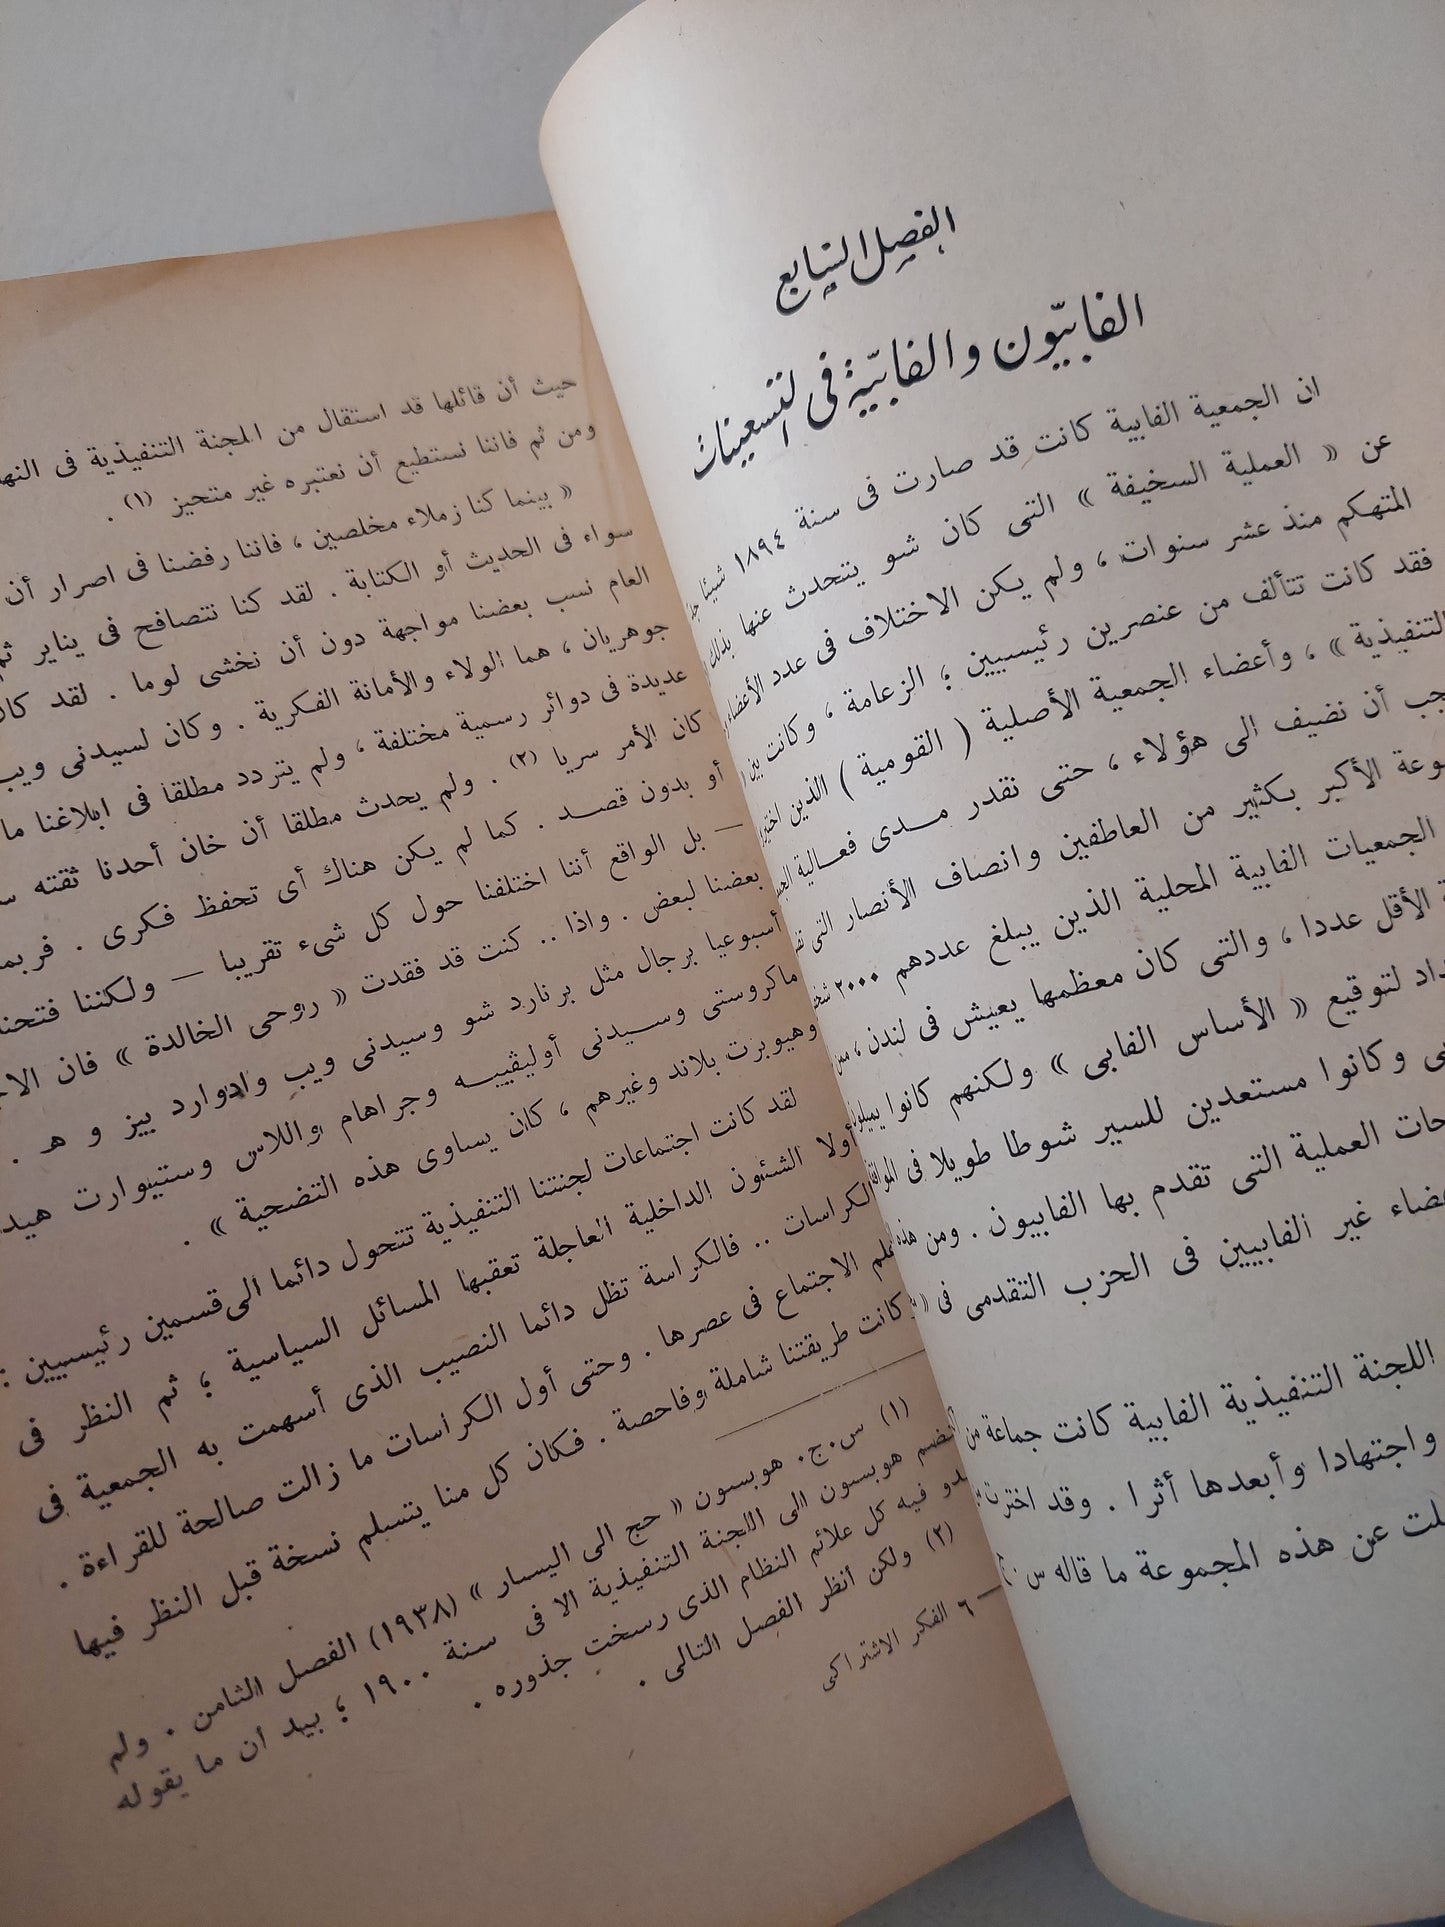 الفصل السابع
الفابيّون والفابيّة فى التسعينات
ان الجمعية الفابية كانت قد صارت فى سنة ١٨٩٤ شيئا
عن « العملية السخيفة » التى كان شو يتحدث عنها بذلك
المتهكم منذ عشر سنوات ، ولم يكن الاختلاف فى عدد الأعضاء
فقد كانت تتألف من عنصرين رئيسيين ؛ الزعامة ، وكانت بين
التنفيذية » ، وأعضاء الجمعية الأصلية ( القومية ) الذين
أن نضيف الى هؤلاء ، حتى نقدر مدى فعالية
الأكبر بكثير من العاطفين وانصاف الأنصار التى
الجمعيات الفابية المحلية الذين يبلغ عددهم ٢٠٠٠
الأقل عددا ، والتى كان معظمها يعيش فى لندن ،
لتوقيع « الأساس الفابى » ولكنهم كانوا
وكانوا مستعدين للسير شوطا طويلا فى
العملية التى تقدم بها الفابيون . ومن هذه
غير الفابيين فى الحزب التقدمى فى «
اللجنة التنفيذية الفابية كانت جماعة من
واجتهادا وأبعدها أثرا . وقد اخترت
عن هذه المجموعة ما قاله س . ج
حيث أن قائلها قد استقال من اللجنة التنفيذية فى
ومن ثم فاننا نستطيع أن نعتبره غير متحيز (١) .
« بينما كنا زملاء مخلصين ، فاننا رفضنا فى اصرار أن
سواء فى الحديث أو الكتابة . لقد كنا نتصافح فى يناير
العام نسب بعضنا مواجهة دون أن نخشى لوما . لقد
جوهريان ، هما الولاء والأمانة الفكرية . وكان لسيدنى ويب
عديدة فى دوائر رسمية مختلفة ، ولم يتردد مطلقا فى ابلاغنا ما
كان الأمر سريا (٢) . ولم يحدث مطلقا أن خان أحدنا ثقته
أو بدون قصد . كما لم يكن هناك أى تحفظ فكرى . فربما
— بل الواقع أننا اختلفنا حول كل شىء تقريبا — ولكننا فتحنا
بعضنا لبعض . واذا .. كنت قد فقدت « روحى الخالدة » فان
أسبوعيا برجال مثل برنارد شو وسيدنى ويب وادوارد بيز و هـ .
ماكروستى وسيدنى أوليڤييه وجراهام واللاس وستيوارت
وهيوبرت بلاند وغيرهم ، كان يساوى هذه التضحية » .
لقد كانت اجتماعات لجنتنا التنفيذية تتحول دائما الى قسمين رئيسيين :
أولا الشئون الداخلية العاجلة تعقبها المسائل السياسية ؛ ثم النظر فى
الكراسات .. فالكراسة تظل دائما النصيب الذى أسهمت به الجمعية فى
علم الاجتماع فى عصرها . وحتى أول الكراسات ما زالت صالحة للقراءة .
وكانت طريقتنا شاملة وفاحصة . فكان كل منا يتسلم نسخة قبل النظر فيها
(١) س.ج. هوبسون « حج الى اليسار » (١٩٣٨) الفصل الثامن . ولم
ينضم هوبسون الى اللجنة التنفيذية الا فى سنة ١٩٠٠ ؛ بيد ان ما يقوله
فيه كل علائم النظام الذى رسخت جذوره .
(٢) ولكن أنظر الفصل التالى .
— ٦ الفكر الاشتراكى